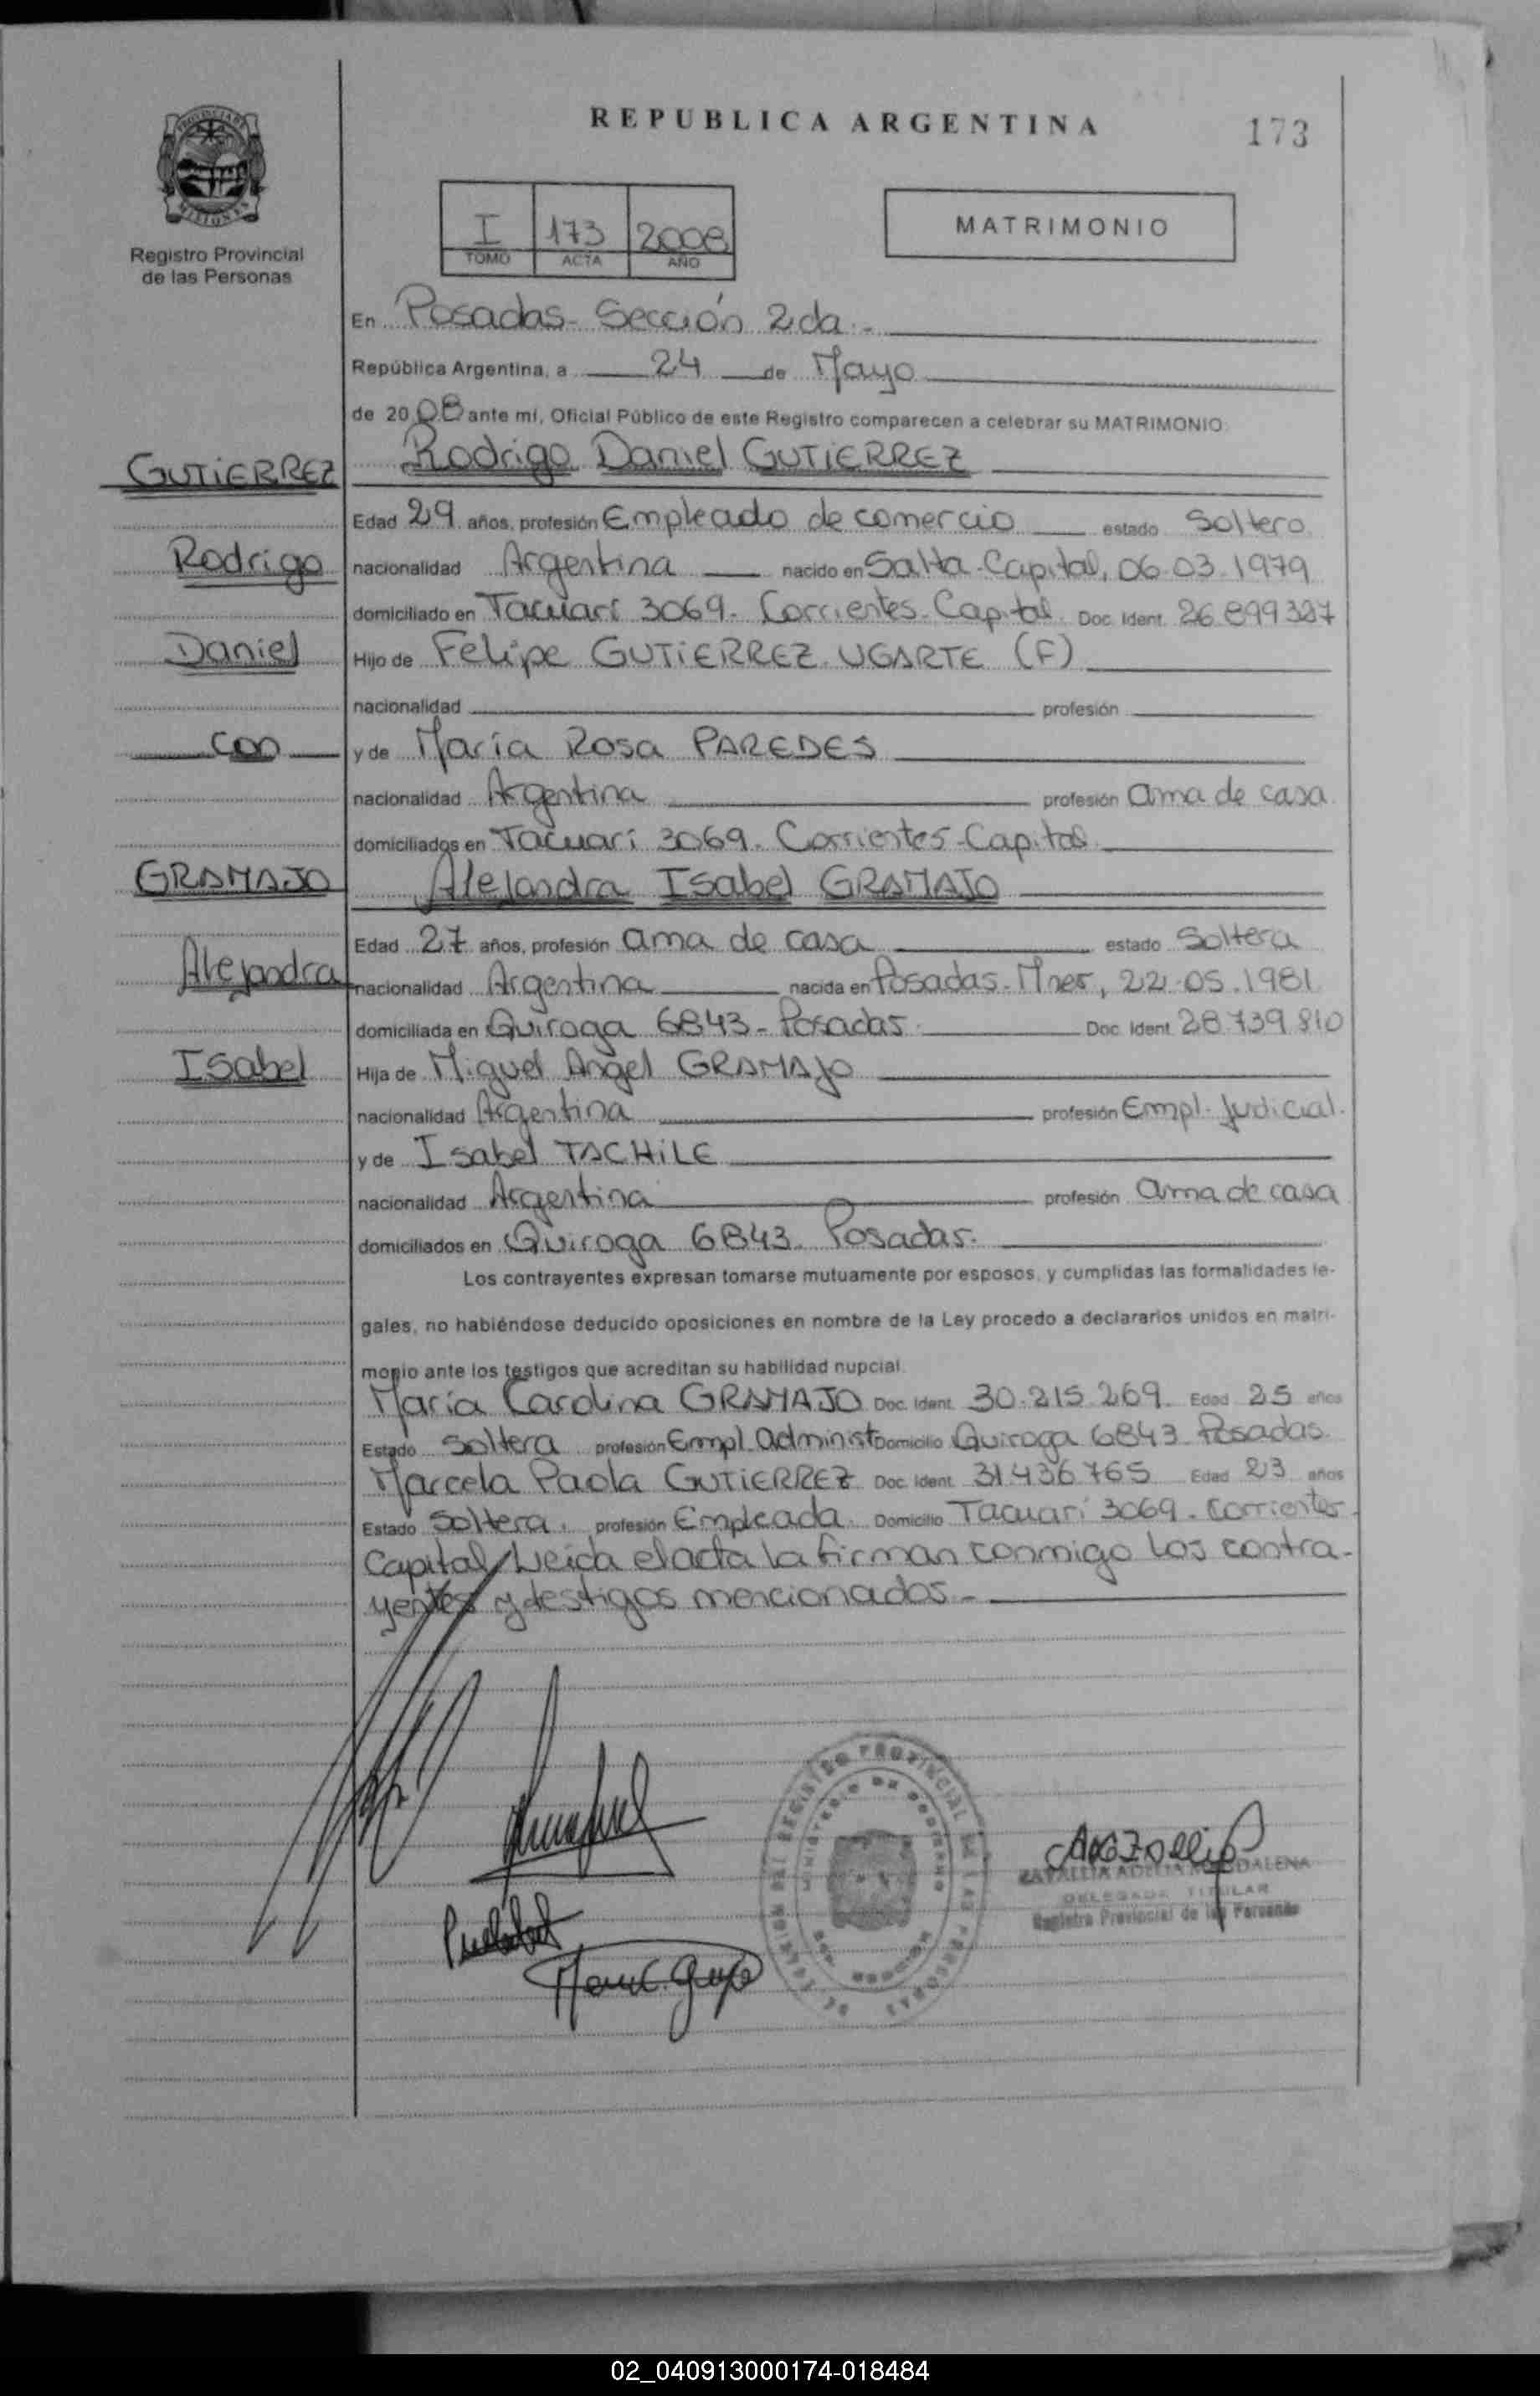 REPUBLICA ARGENTINA
173
PROVINCIA DE
MISIONES
Registro Provincial
de las Personas
I 173 2008
TOMO ACTA AÑO
MATRIMONIO
En Posadas - Sección 2da. -
República Argentina, a 24 de Mayo
de 2008 ante mí, Oficial Público de este Registro comparecen a celebrar su MATRIMONIO
GUTIERREZ
Rodrigo Daniel GUTIERREZ
Edad 29 años, profesión Empleado de comercio estado Soltero
Rodrigo
nacionalidad Argentina nacido en Salta - Capital, 06.03.1979
domiciliado en Tacuarí 3069. Corrientes - Capital Doc. Ident. 26.899.327
Daniel
Hijo de Felipe GUTIERREZ UGARTE (F)
nacionalidad profesión
con
y de María Rosa PAREDES
nacionalidad Argentina profesión ama de casa
domiciliados en Tacuarí 3069. Corrientes - Capital
GRAMAJO
Alejandra Isabel GRAMAJO
Edad 27 años, profesión ama de casa estado Soltera
Alejandra
nacionalidad Argentina nacida en Posadas - Mnes, 22.05.1981
domiciliada en Quiroga 6843 - Posadas Doc. Ident. 28.739.810
Isabel
Hija de Miguel Angel GRAMAJO
nacionalidad Argentina profesión Empl. Judicial.
y de Isabel TACHILE
nacionalidad Argentina profesión ama de casa
domiciliados en Quiroga 6843. Posadas.
Los contrayentes expresan tomarse mutuamente por esposos, y cumplidas las formalidades le-
gales, no habiéndose deducido oposiciones en nombre de la Ley procedo a declararlos unidos en matri-
monio ante los testigos que acreditan su habilidad nupcial.
María Carolina GRAMAJO Doc. Ident. 30.215.269 Edad 25 años
Estado Soltera profesión Empl. Administ Domicilio Quiroga 6843 - Posadas
Marcela Paola GUTIERREZ Doc. Ident. 31436765 Edad 23 años
Estado Soltera. profesión Empleada. Domicilio Tacuarí 3069 - Corrientes -
Capital/ Leída el acta la firman conmigo los contra-
yentes y testigos mencionados -
ZAVALLIA ADELIA MAGDALENA
DELEGADA TITULAR
Registro Provincial de las Personas
REGISTRO PROVINCIAL DE LAS PERSONAS
MINISTERIO DE GOBIERNO
02_040913000174-018484